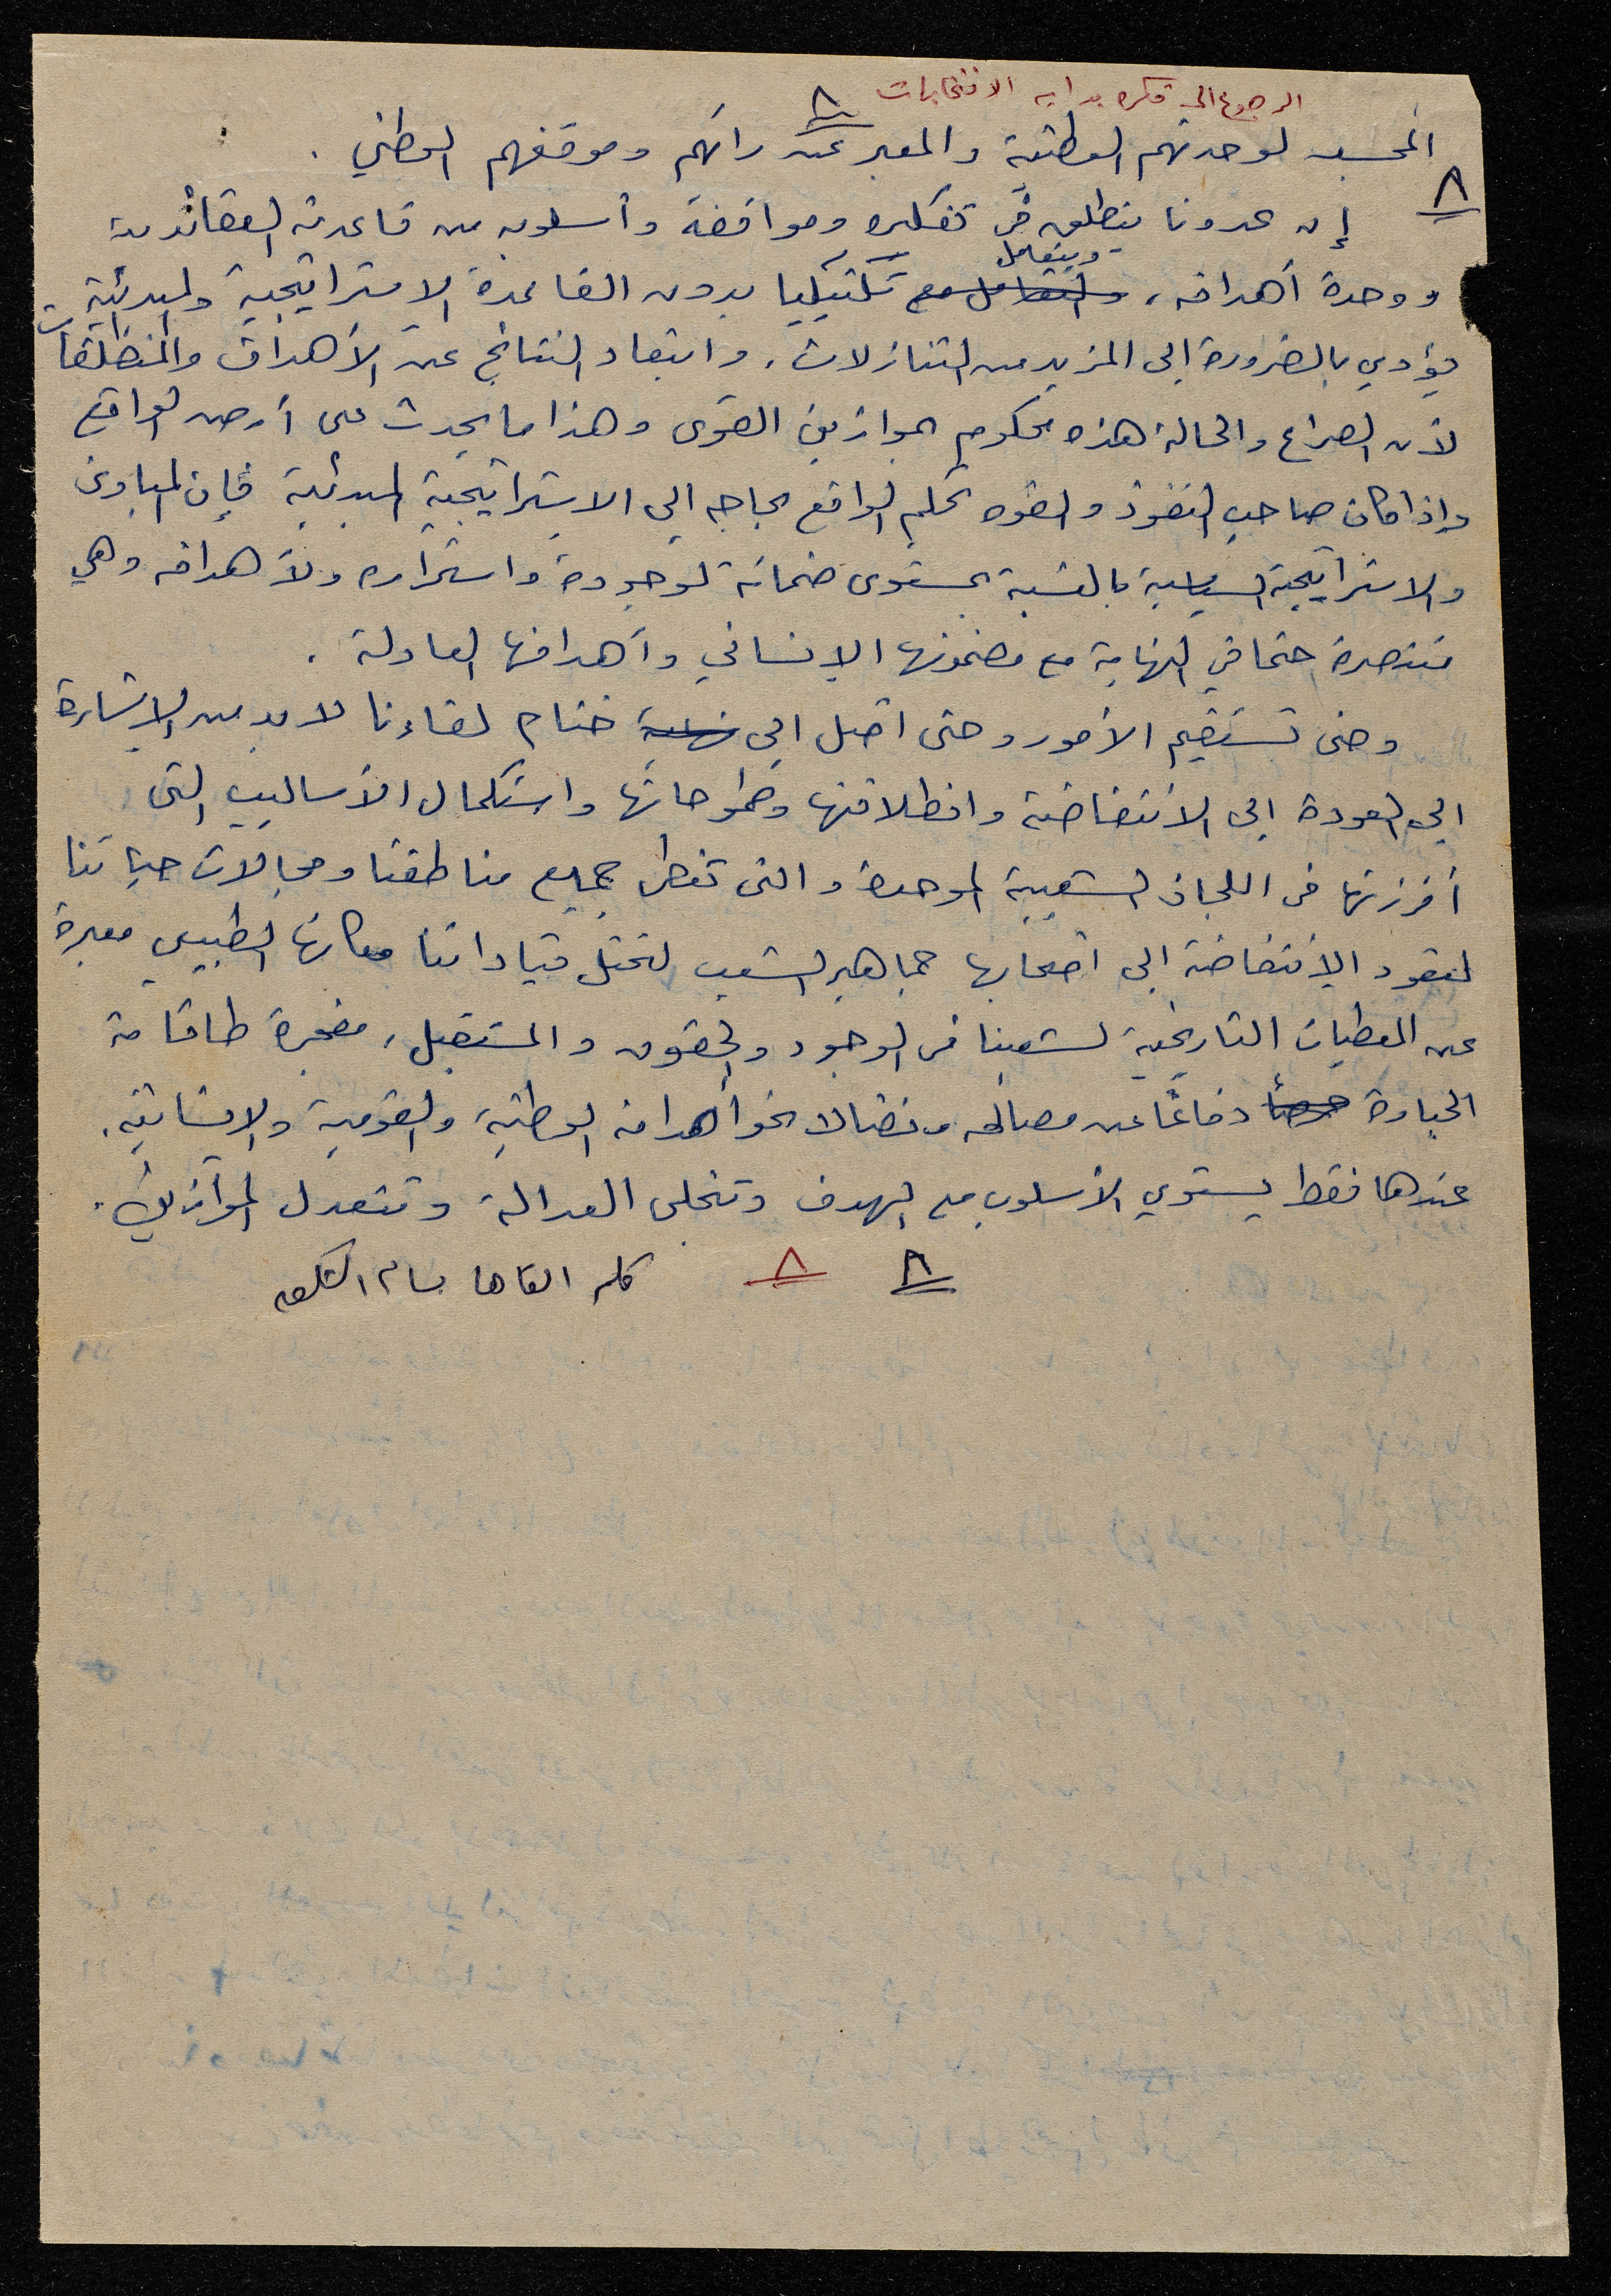 الرجوع الى فكره بدايه الانتخابات
٨
المجسد لوحدتهم الوطنية والمعبر عن رأيهم وموقفهم الوطني .
٨
إن عدونا ينطلق في تفكيره ومواقفه وأسلوبه من قاعدته العقائدية
ويتعامل
ووحدة أهدافه، والتعامل معه تكتيكيا بدون القاعدة الاستراتيجية والمبدئية
يؤدي بالضرورة إلى المزيد من التنازلات، وابتعاد النتائج عن الأهداف والمنطلقات
لأن الصراع والحالة هذه محكوم بموازين القوى وهذا ما يحدث على أرض الواقع
وإذا كان صاحب النفوذ والقوه بحكم الواقع بحاجه إلى الاستراتيجية المبدئية فإن المبادئ
والاستراتيجية السياسية بالنسبة لمستوى ضمانة لوجوده واستمراره ولأهدافه وهي
منتصرة حتما في النهاية مع مضمونها الإنساني وأهدافها العادلة .
وحتى تستقيم الأمور وحتى اصل الى نهاية ختام لقاءنا لا بد من الإشارة
الى العودة إلى الانتفاضة وانطلاقتها وطموحاتها واستكمال الأساليب التى
أفرزتها في اللجان الشعبية الموحدة والتى تغطى جميع مناطقنا ومجالات حياتنا
لتعود الإنتفاضة إلى اصحابها جماهير الشعب لتحتل قياداتنا مكانها الطبيعي معبرة
عن المعطيات التاريخية لشعبنا في الوجود والحقوق والمستقبل، مفجرة طاقاته
الجبارة دفاعًا عن مصالحه ونضالا نحو أهدافه الوطنية والقومية والإنسانية.
عندها فقط يستوي الأسلوب مع الهدف وتتجلى العدالة وتتعدل الموازين.
٨ ٨ كلمه القاها بسام الشكعه